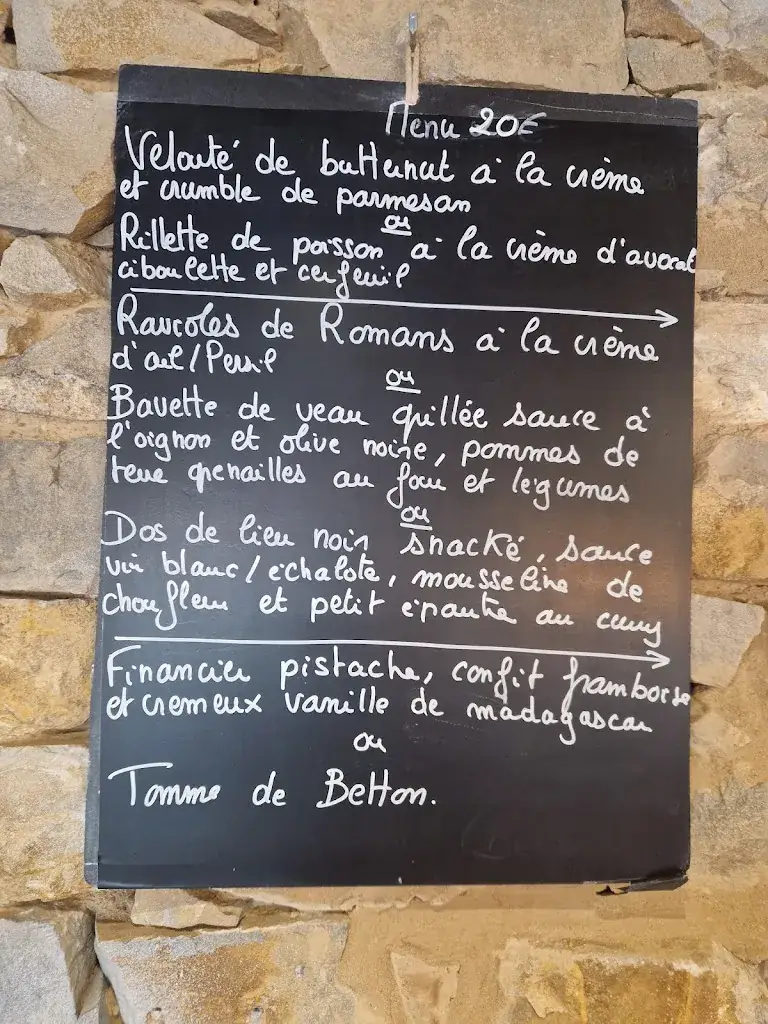 Menu 20€
Velouté de butternut à la crème
et crumble de parmesan
ou
Rillette de poisson à la crème d'avocat
ciboulette et cerfeuil
Ravioles de Romans à la crème
d'ail / Persil
ou
Bavette de veau grillée sauce à
l'oignon et olive noire, pommes de
terre grenailles au four et légumes
ou
Dos de lieu noir snacké, sauce
vin blanc / échalote, mousseline de
choufleur et petit épautre au curry
Financier pistache, confit framboise
et crémeux vanille de madagascar
ou
Tomme de Betton.